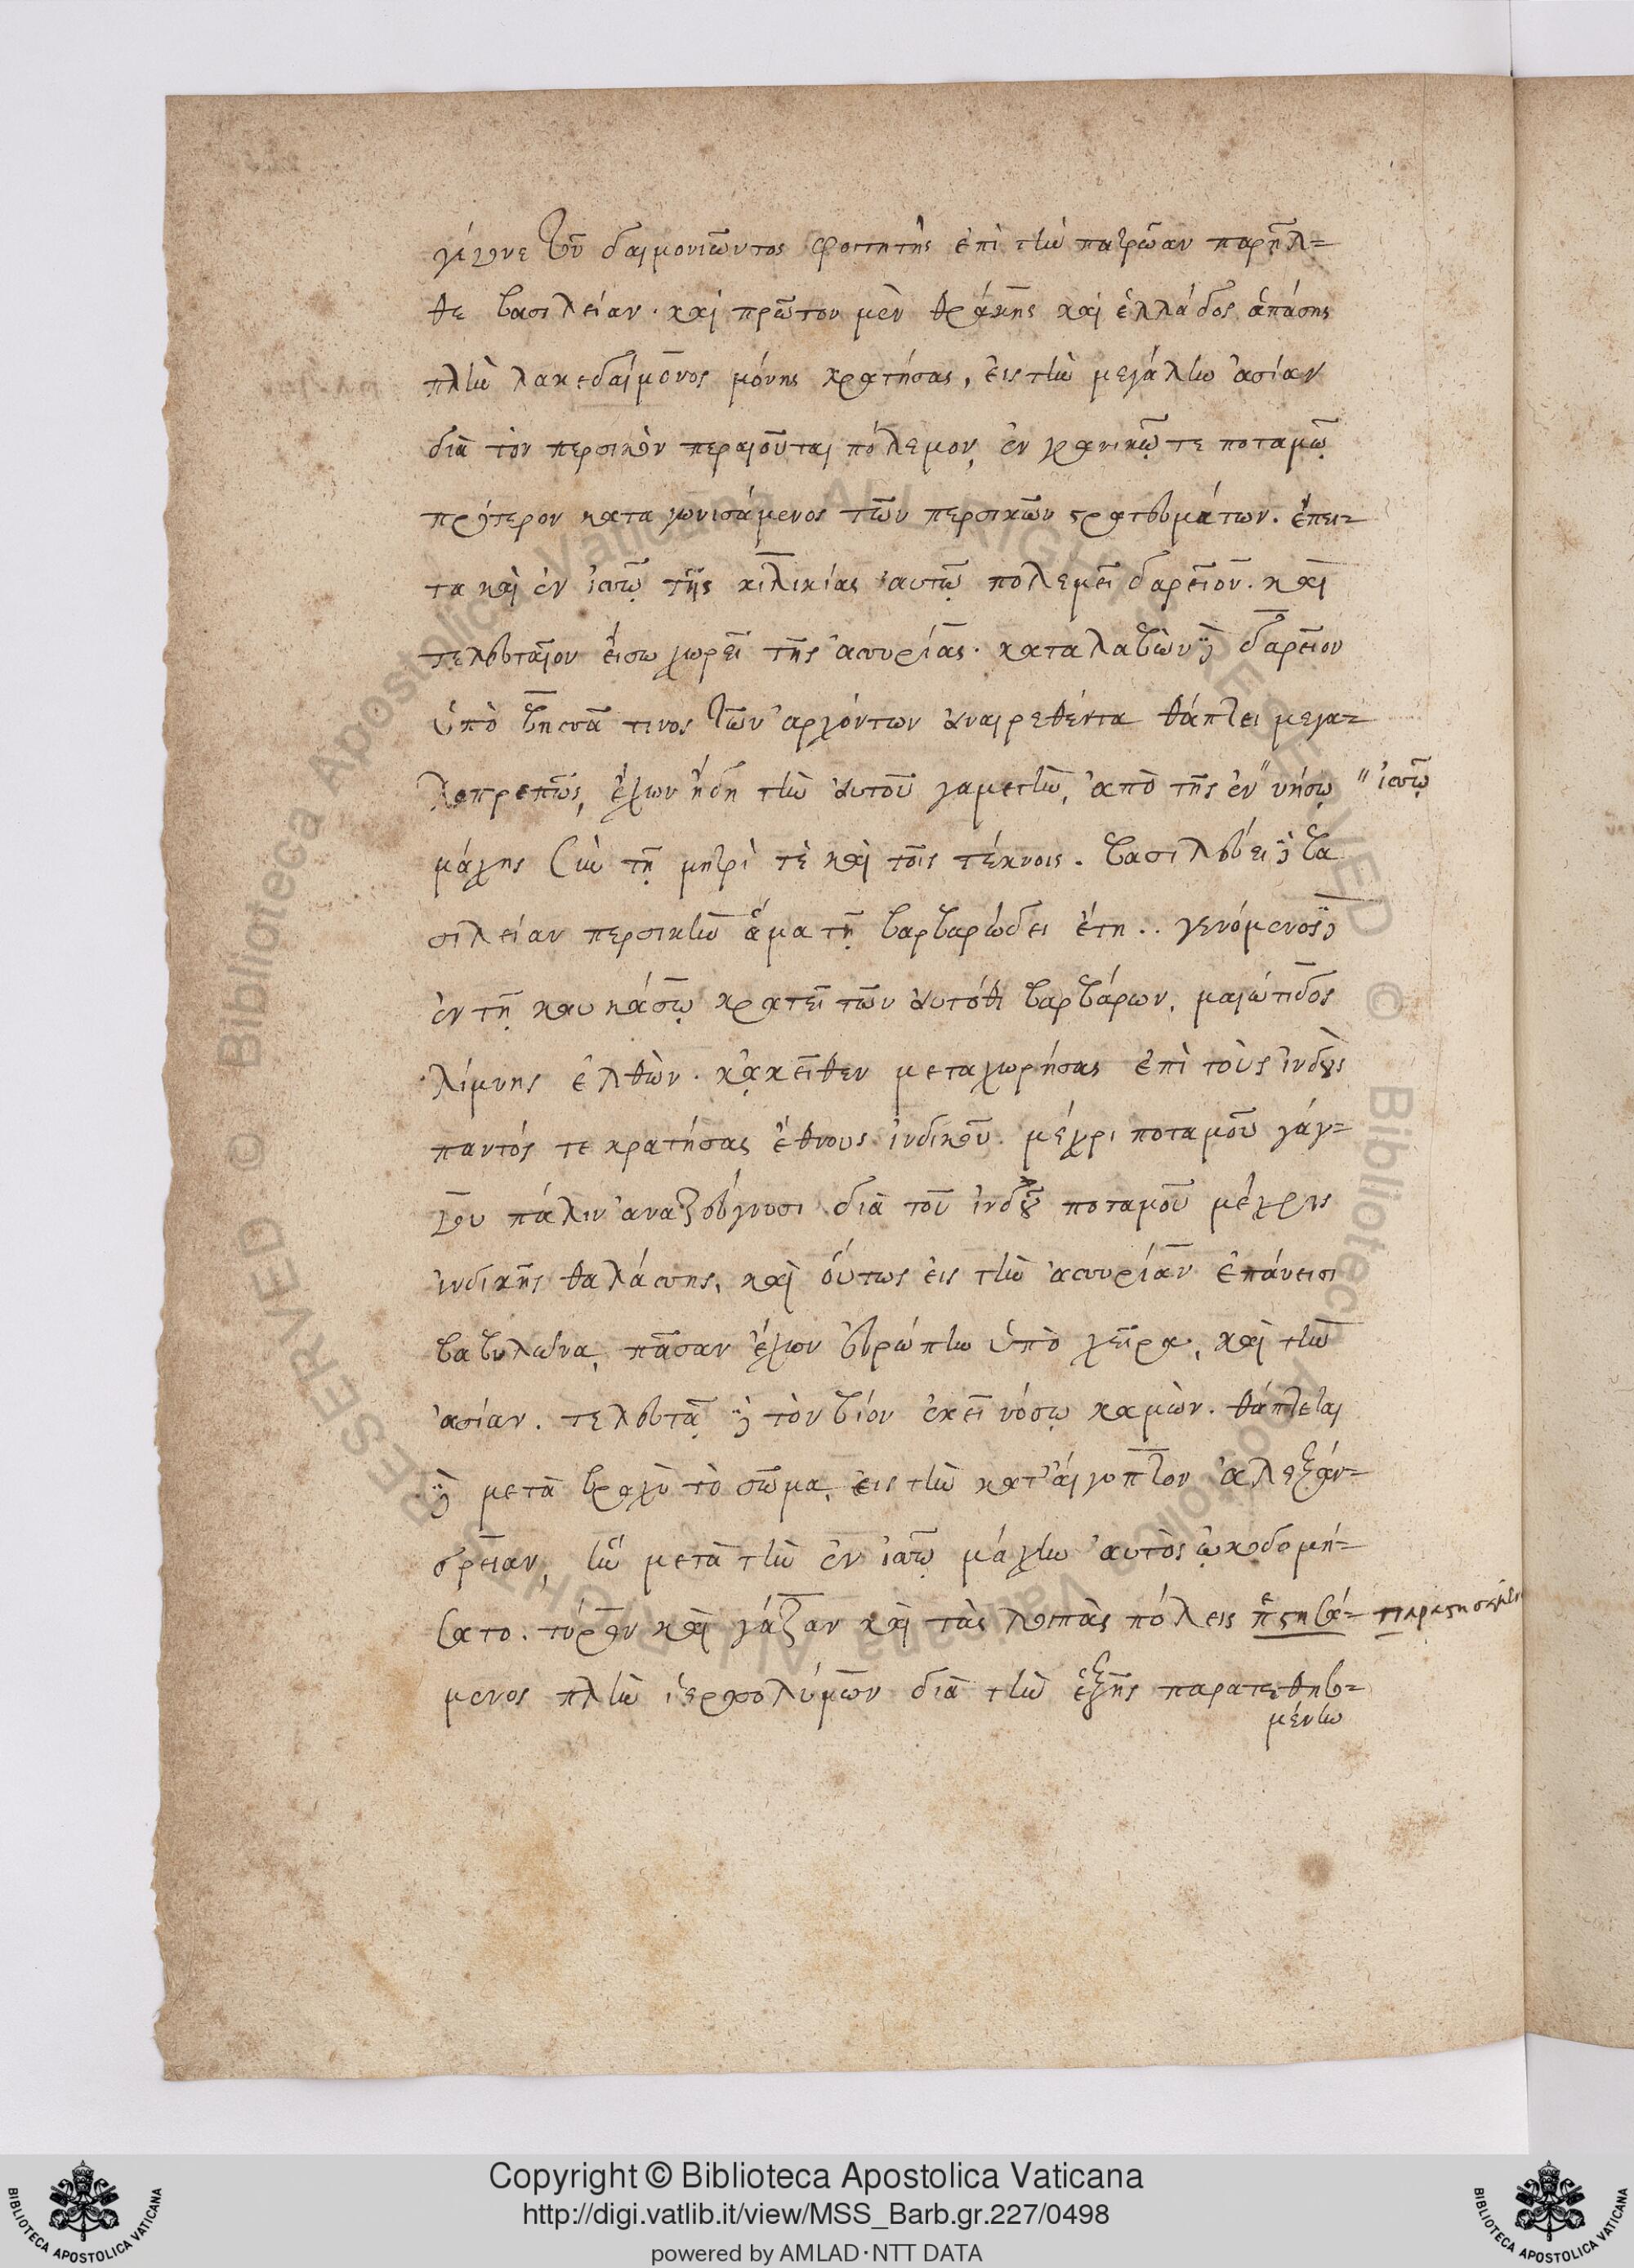 γέγονε τοῦ δαιμονιῶντος φοιτητὴς ἐπὶ τὴν πατρῶαν παρῆλ=
θε βασιλείαν· καὶ πρῶτον μὲν θρᾴκης καὶ ἑλλάδος ἁπάσης
πλὴν λακεδαίμονος μόνης κρατήσας, εἰς τὴν μεγάλην ἀσίαν
διὰ τὸν περσικὸν περαιοῦται πόλεμον, ἐν γρανικῷ τε ποταμῷ
πρότερον καταγωνισάμενος τῶν περσικῶν στρατευμάτων. ἔπει=
τα καὶ ἐν ἰσσῷ τῆς κιλικίας αὐτῷ πολεμεῖ δαρεῖον. καὶ
τελευταῖον εἴσω χωρεῖ τῆς ἀσσυρίας· καταλαβὼν δὲ δαρεῖον
ὑπὸ βησσᾶ τινος τῶν ἀρχόντων ἀναιρεθέντα θάπτει μεγα=
λοπρεπῶς, ἔχων ἤδη τὴν αὐτοῦ γαμετὴν, ἀπὸ τῆς ἐν " νήσῳ " ἰσσῷ
μάχης σὺν τῇ μητρὶ τὲ καὶ τοῖς τέκνοις. βασιλεύει δὲ βα
σιλείαν περσικὴν ἅμα τῇ βαρβαρώδει ἔτη .. γενόμενος δὲ
ἐν τῇ καυκάσῳ κρατεῖ τῶν αὐτόθι βαρβάρων, μαιώτιδος
λίμνης ἐλθὼν. κἀκεῖθεν μεταχωρήσας ἐπὶ τοὺς ἰνδοὺς
παντός τε κρατήσας ἔθνους ἰνδικοῦ. μέχρι ποταμοῦ γάγ=
γου πάλιν ἀναζεύγνυσι διὰ τοῦ ἰνδοῦ ποταμοῦ μέχρις
ἰνδικῆς θαλάσσης, καὶ οὕτως εἰς τὴν ἀσσυρίαν ἐπάνεισι
βαβυλῶνα, πᾶσαν ἔχων εὐρώπην ὑπὸ χεῖρα, καὶ τὴν
ἀσίαν. τελευτᾷ δὲ τὸν βίον ἐκεῖ νόσῳ καμὼν. θάπτεται
δὲ μετὰ βραχὺ τὸ σῶμα, εἰς τὴν κατ' αἴγυπτον ἀλεξάν=
δρειαν, ἣν μετὰ τὴν ἐν ἰσσῷ μάχην αὐτὸς ᾠκοδομή=
σατο. τύρον καὶ γάζαν καὶ τὰς λοιπὰς πόλεις
μενος πλὴν ἱεροσολύμων διὰ τὴν ἑξῆς παρατεθησο=
μένην